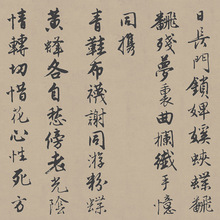 日長門鎖 蛺蝶翩
翩殘夢裏曲欄纖手憶
同攜
青鞋布襪謝同游粉蝶
黃蜂各自愁傍老光陰
情轉切惜花心性死方